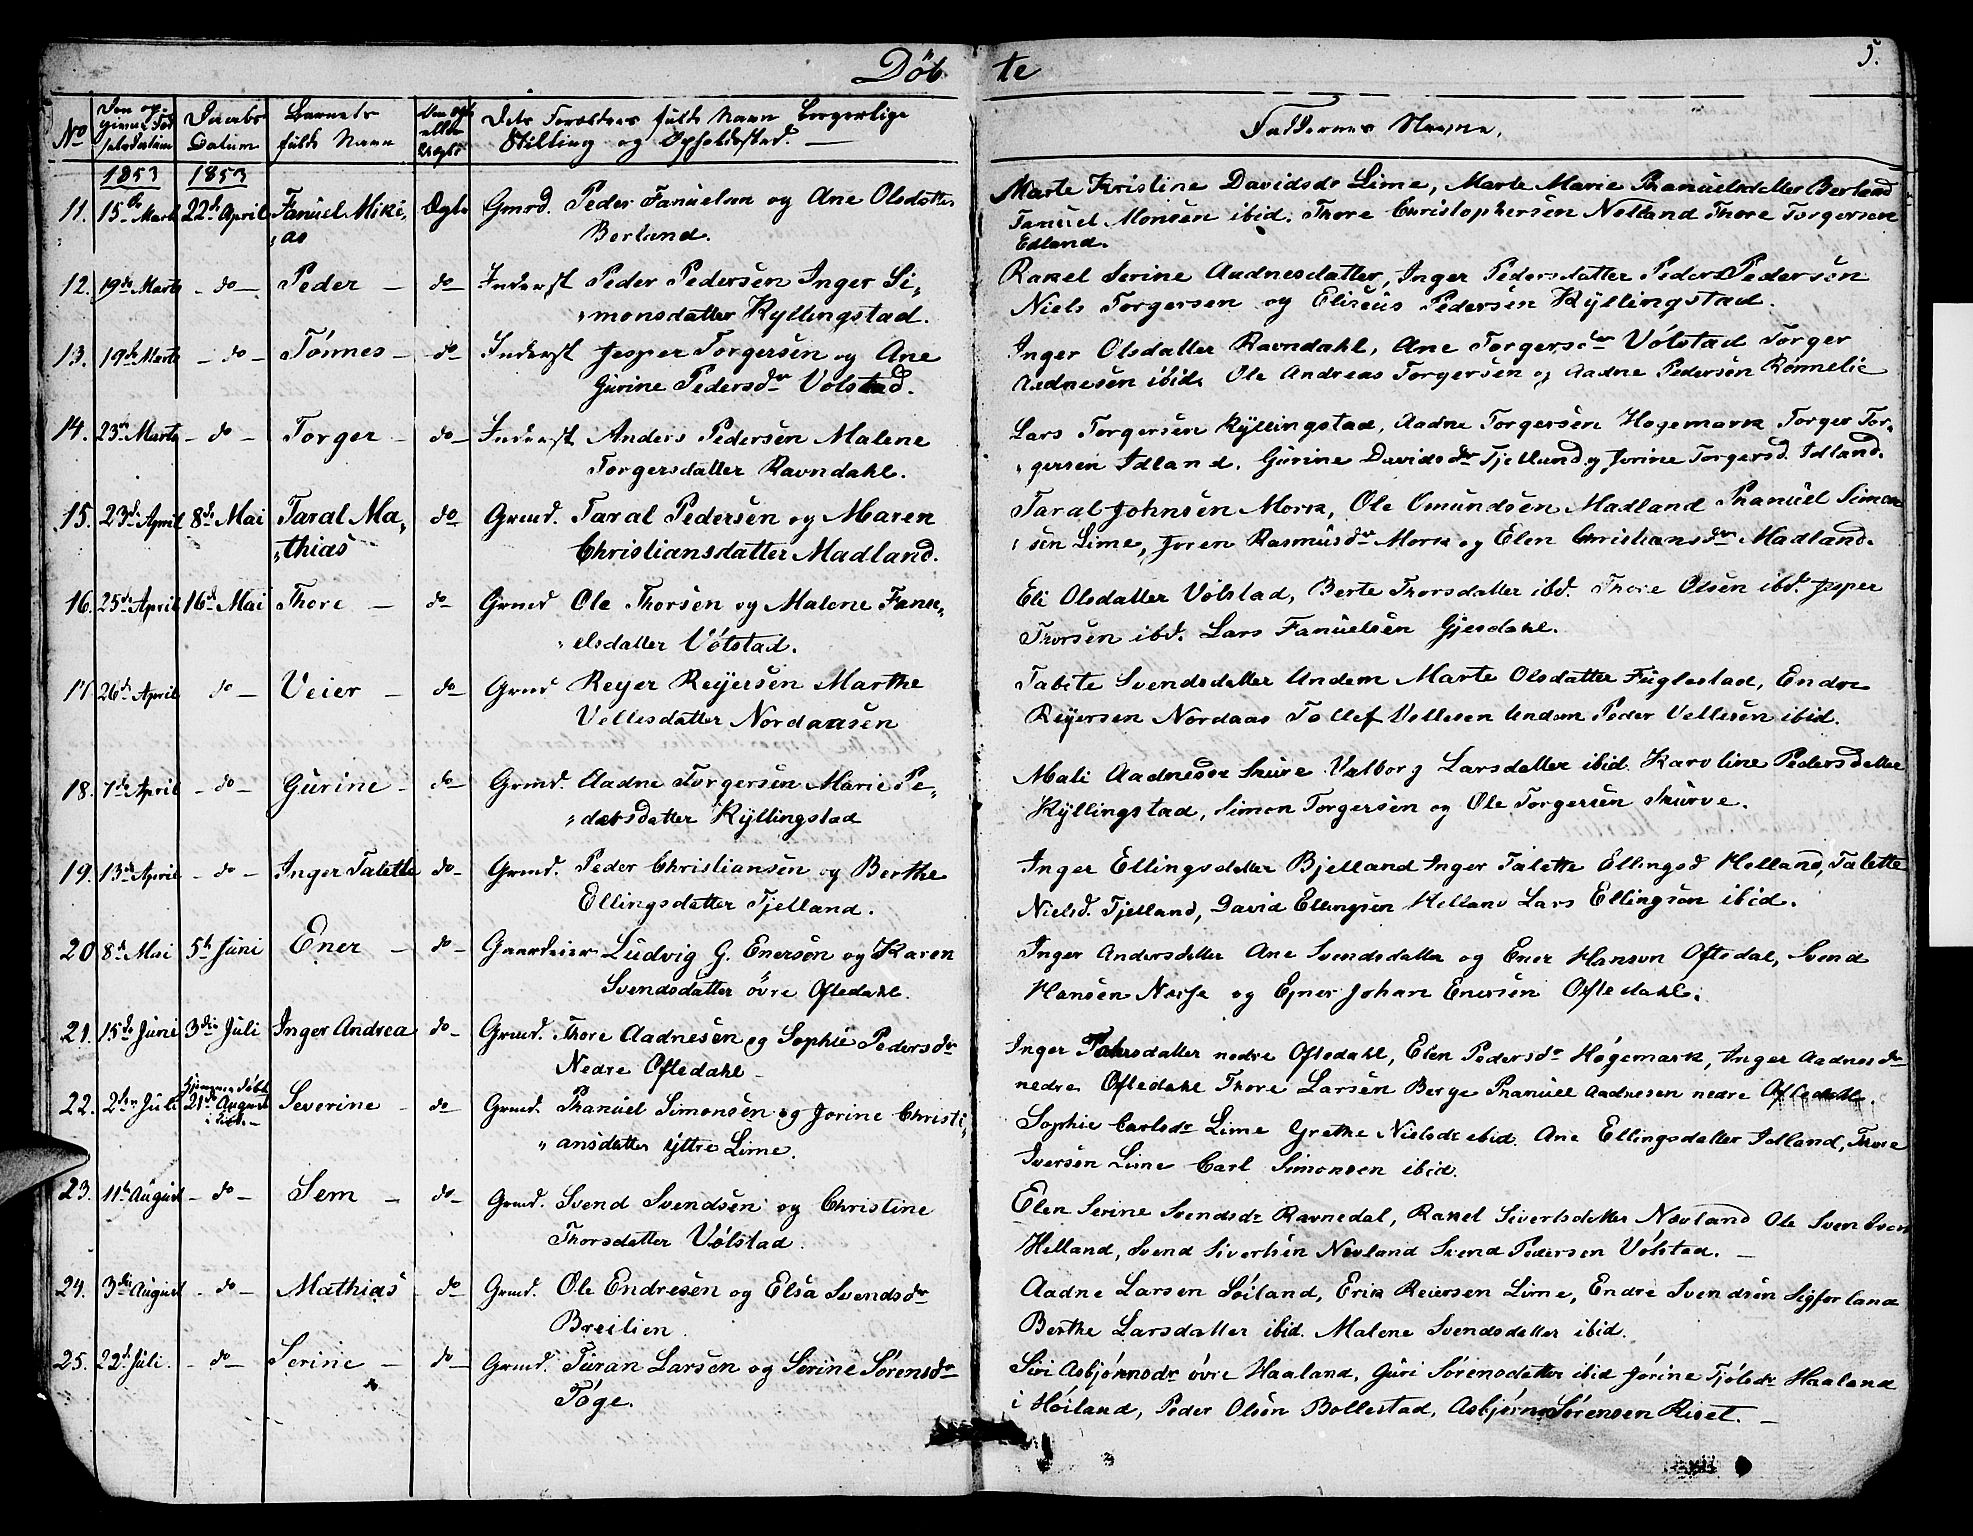 Döbte
5.
No | Den opgivne Fødselsdatum | Daabs Datum | Barnets fulde Navn | Om Ægte eller Uægte | Dets Foreldres fulde Navn Borgerlige Stilling og Opholdssted. | Faddernes Navne.
1853 1853
11. 15de Marts 22de April Fanüel Miki, Ægte Gmrd. Peder Fanuelsen og Ane Olsdatter
„as Berland.
Marte Kristine Davidsdr Lime, Marte Marie Phanüelsdatter Berland
Fanüel Monsen ibid. Thore Christophersen Netland Thore Torgersen
Edland.
12. 19de Marts - do - Peder - do - Inderst Peder Pedersen Inger Si,
„monsdatter Kyllingstad.
Rakel Serine Audnesdatter, Inger Pedersdatter Peder Pedersen
Niels Torgersen og Eliseüs Pedersen Kÿllingstad.
13. 19de Marts - do - Tönnes - do - Inderst Jesper Torgersen og Ane
Gürine Pedersdr Volstad.
Inger Olsdatter Ravndahl, Ane Torgersdr Völstad Torger
Aadnesen ibid. Ole Andreas Torgersen og Aadne Pedersen Rønnelie
14. 23de Marts - do - Torger - do - Inderst Anders Pedersen Malene
Torgersdatter Ravndahl.
Lars Torgersen Kÿllingstad, Aadne Torgersen Hogemark Torger Tor,
„gersen Idland. Gürine Davidsdr Tjelland og Jorine Torgersd. Idland.
15. 23de April 8de Mai Taral Ma, do Grmd. Taral Pedersen og Maren
„thias Christiansdatter Madland.
Taral Johnsen Mork, Ole Omündsen Madland Phanüel Simon
„sen Lime, Joren Rasmüsdr Mork og Elen Christiansdr Madland.
16. 25de April 16de Mai Thore - do - Grmd Ole Thorsen og Malene Fanu,
„elsdatter Völstad.
Eli Olsdatter Völstad, Berte Thorsdatter ibd. Thore Olsen ibd. Jesper
Thorsen ibd. Lars Fanüelsen Gjesdahl.
17. 26de April do - Veier - do - Grmd Reyer Reÿersen Marthe
Vellesdatter Nordaasen
Tabite Svendsdatter Undem Marte Olsdatter Füglestad, Endre
Reÿersen Nordaas Tollef Vellesen Undem Peder Vellesen ibid.
18. 7de April - do - Gürine - do - Grmd. Aadne Torgersen Marie Pe,
„dersdatter Kÿllingstad
Mali Aadnesdr Skürve Valborg Larsdatter ibid. Karoline Pedersdatter
Kÿllingstad, Simon Torgersen og Ole Torgersen Skürve.
19. 13de April - do - Inger Talette do - Grmd. Peder Christiansen og Berthe
Ellingsdatter Tjelland.
Inger Ellingsdatter Bjelland Inger Talette Ellingsd Helland, Talette
Nielsd. Tjelland, David Ellingsen Helland Lars Ellingsen ibid.
20 8de Mai 5te Jüni Ener - do - Gaardeier Lüdvig G. Enersen og Karen
Svendsdatter övre Oftedahl.
Inger Andersdatter Ane Svendsdatter og Ener Hansen Oftedal, Svend
Hansen og Ejner Johan Enersen Oftedahl.
21. 15de Jüni 3die Jüli Inger Andrea do - Grmd. Thore Aadnesen og Sophie Pedersdr
Nedre Oftedahl -
Inger nedre Oftedahl, Elen Pedersdr Høgemark, Inger Aadnesdr
nedre Oftedahl Thore Larsen Berge Phanüel Aadnesen nedre Oftedahl.
22. 2den Jüli Hjemmedöbt 21de August Severine - do - Grmd. Phanüel Simonsen og Jorine Christi,
„ansdatter ÿttre Lime.
Sophie Carlsdr Lime Grethe Nielsdr ibid. Ane Ellingsdatter Idland, Thore
Iversen Lime Carl Simonsen ibid.
23. 11te Aügust - do - Sem - do - Grmd. Svend Svendsen og Christine
Thorsdatter Völstad.
Elen Serine Svendsdr Ravnedal, Rakel Sivertsdatter Nevland Ole Svendsen
Helland, Svend Sivertsen Nevland Svend Pedersen Völstad. -
24. 3die Aügust - do - Mathias do Grmd. Ole Endresen og Elsa Svendsdr
Breilien.
Aadne Larsen Söiland, Erik Reiersen Lime, Endre Svendsen Sigforland
Berthe Larsdatter ibid. Malene Svendsdatter ibid.
25. 22de Jüli. - do - Serine - do - Grmd. Türan Larsen og Serine Sörensdr
Töge.
Siri Asbjörnsdr övre Haaland, Güri Sörensdatter ibid Jörine Haaland
i Höiland, Peder Olsen Bollestad, Asbjörn Sörensen Riset. -